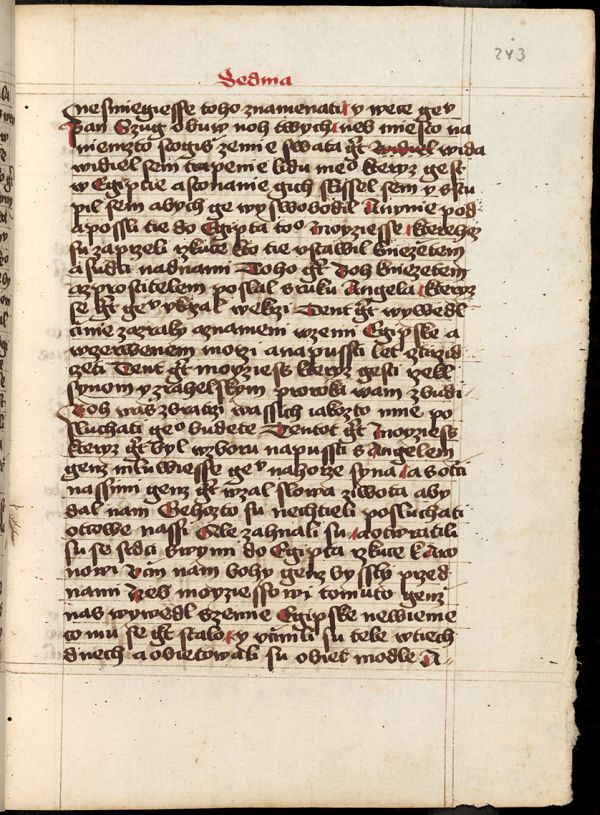 243
Sedma
nesmiegiesse toho znamenati y wece gey
pan Szug obuw noh twych neb miesto na
niemzto stogis zemie swata gt widiel wida
widiel sem trapenie lidu meo kteryz gest
w Egiptie a stonanie gich slissel sem y stu
pil sem abych ge wyswobodil Anynie pod
apossli tie do Egipta too moyziesse kterehoz
su zaprzeli rzkuce kto tie vstawil kniezetem
a sudci nadnami Toho gt boh kniezetem
azprostitelem poslal sruku Angela kteryz
se gt gey vkazal wekrzi Tent gt wywedl
cinie zazraky aznamenie wzemi Egipske a
wczerwenem morzi anapussti let cztrzid
zeti Tent gt moyziess kteryz gesti rzekl
synom yzrahelskym proroka wam zbudi
boh was zbratrzi wassich iakozto mne po
sluchati geo budete Tentot gt moyziess
kteryz gt byl wzboru napussti s Angelem
genz mluwiesse gey nahorze syna a s otci
nassimi genz gt wzal slowa ziwota aby
dal nam Gehozto su nechtieli posluchati
otcowe nassi Ale zahnali su aotwratili
su se srdci swymi do Egipta rzkuce k Aro
nowi vczin nam bohy genz by ssly przed
nami Neb moyziessowi tomuto genz
nas wywedl zzemie Egipske newieme
co mu se gt stalo y vczinili su tele wtiech
dnech a obietowali su obiet modle A